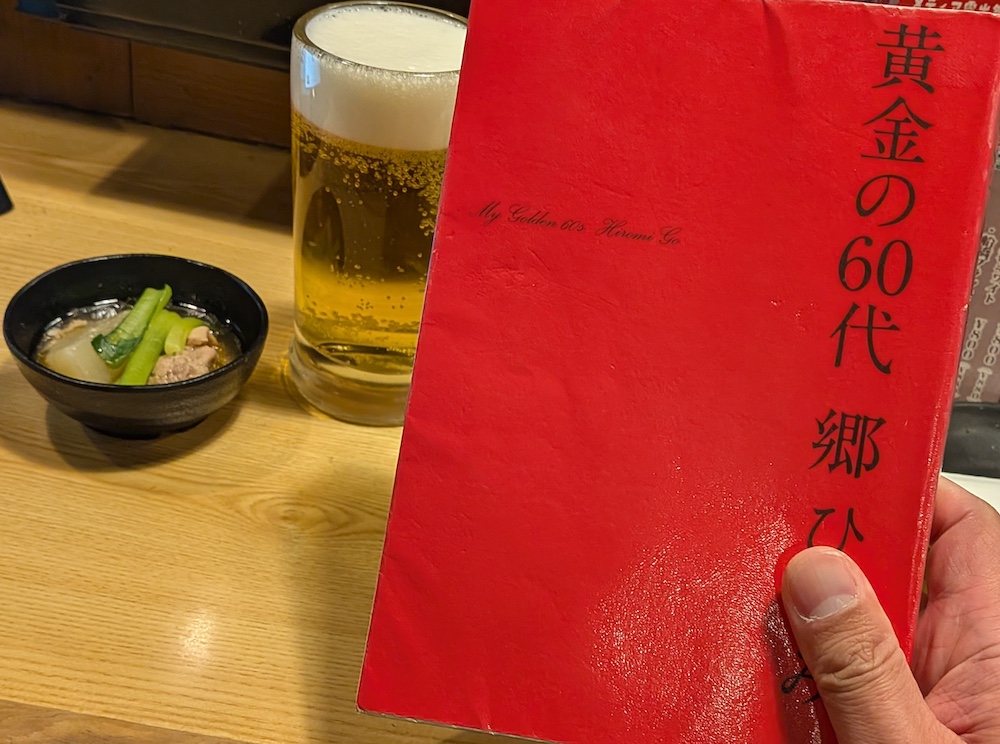 黄金の60代 郷ひ
My Golden 60s Hiromi Go